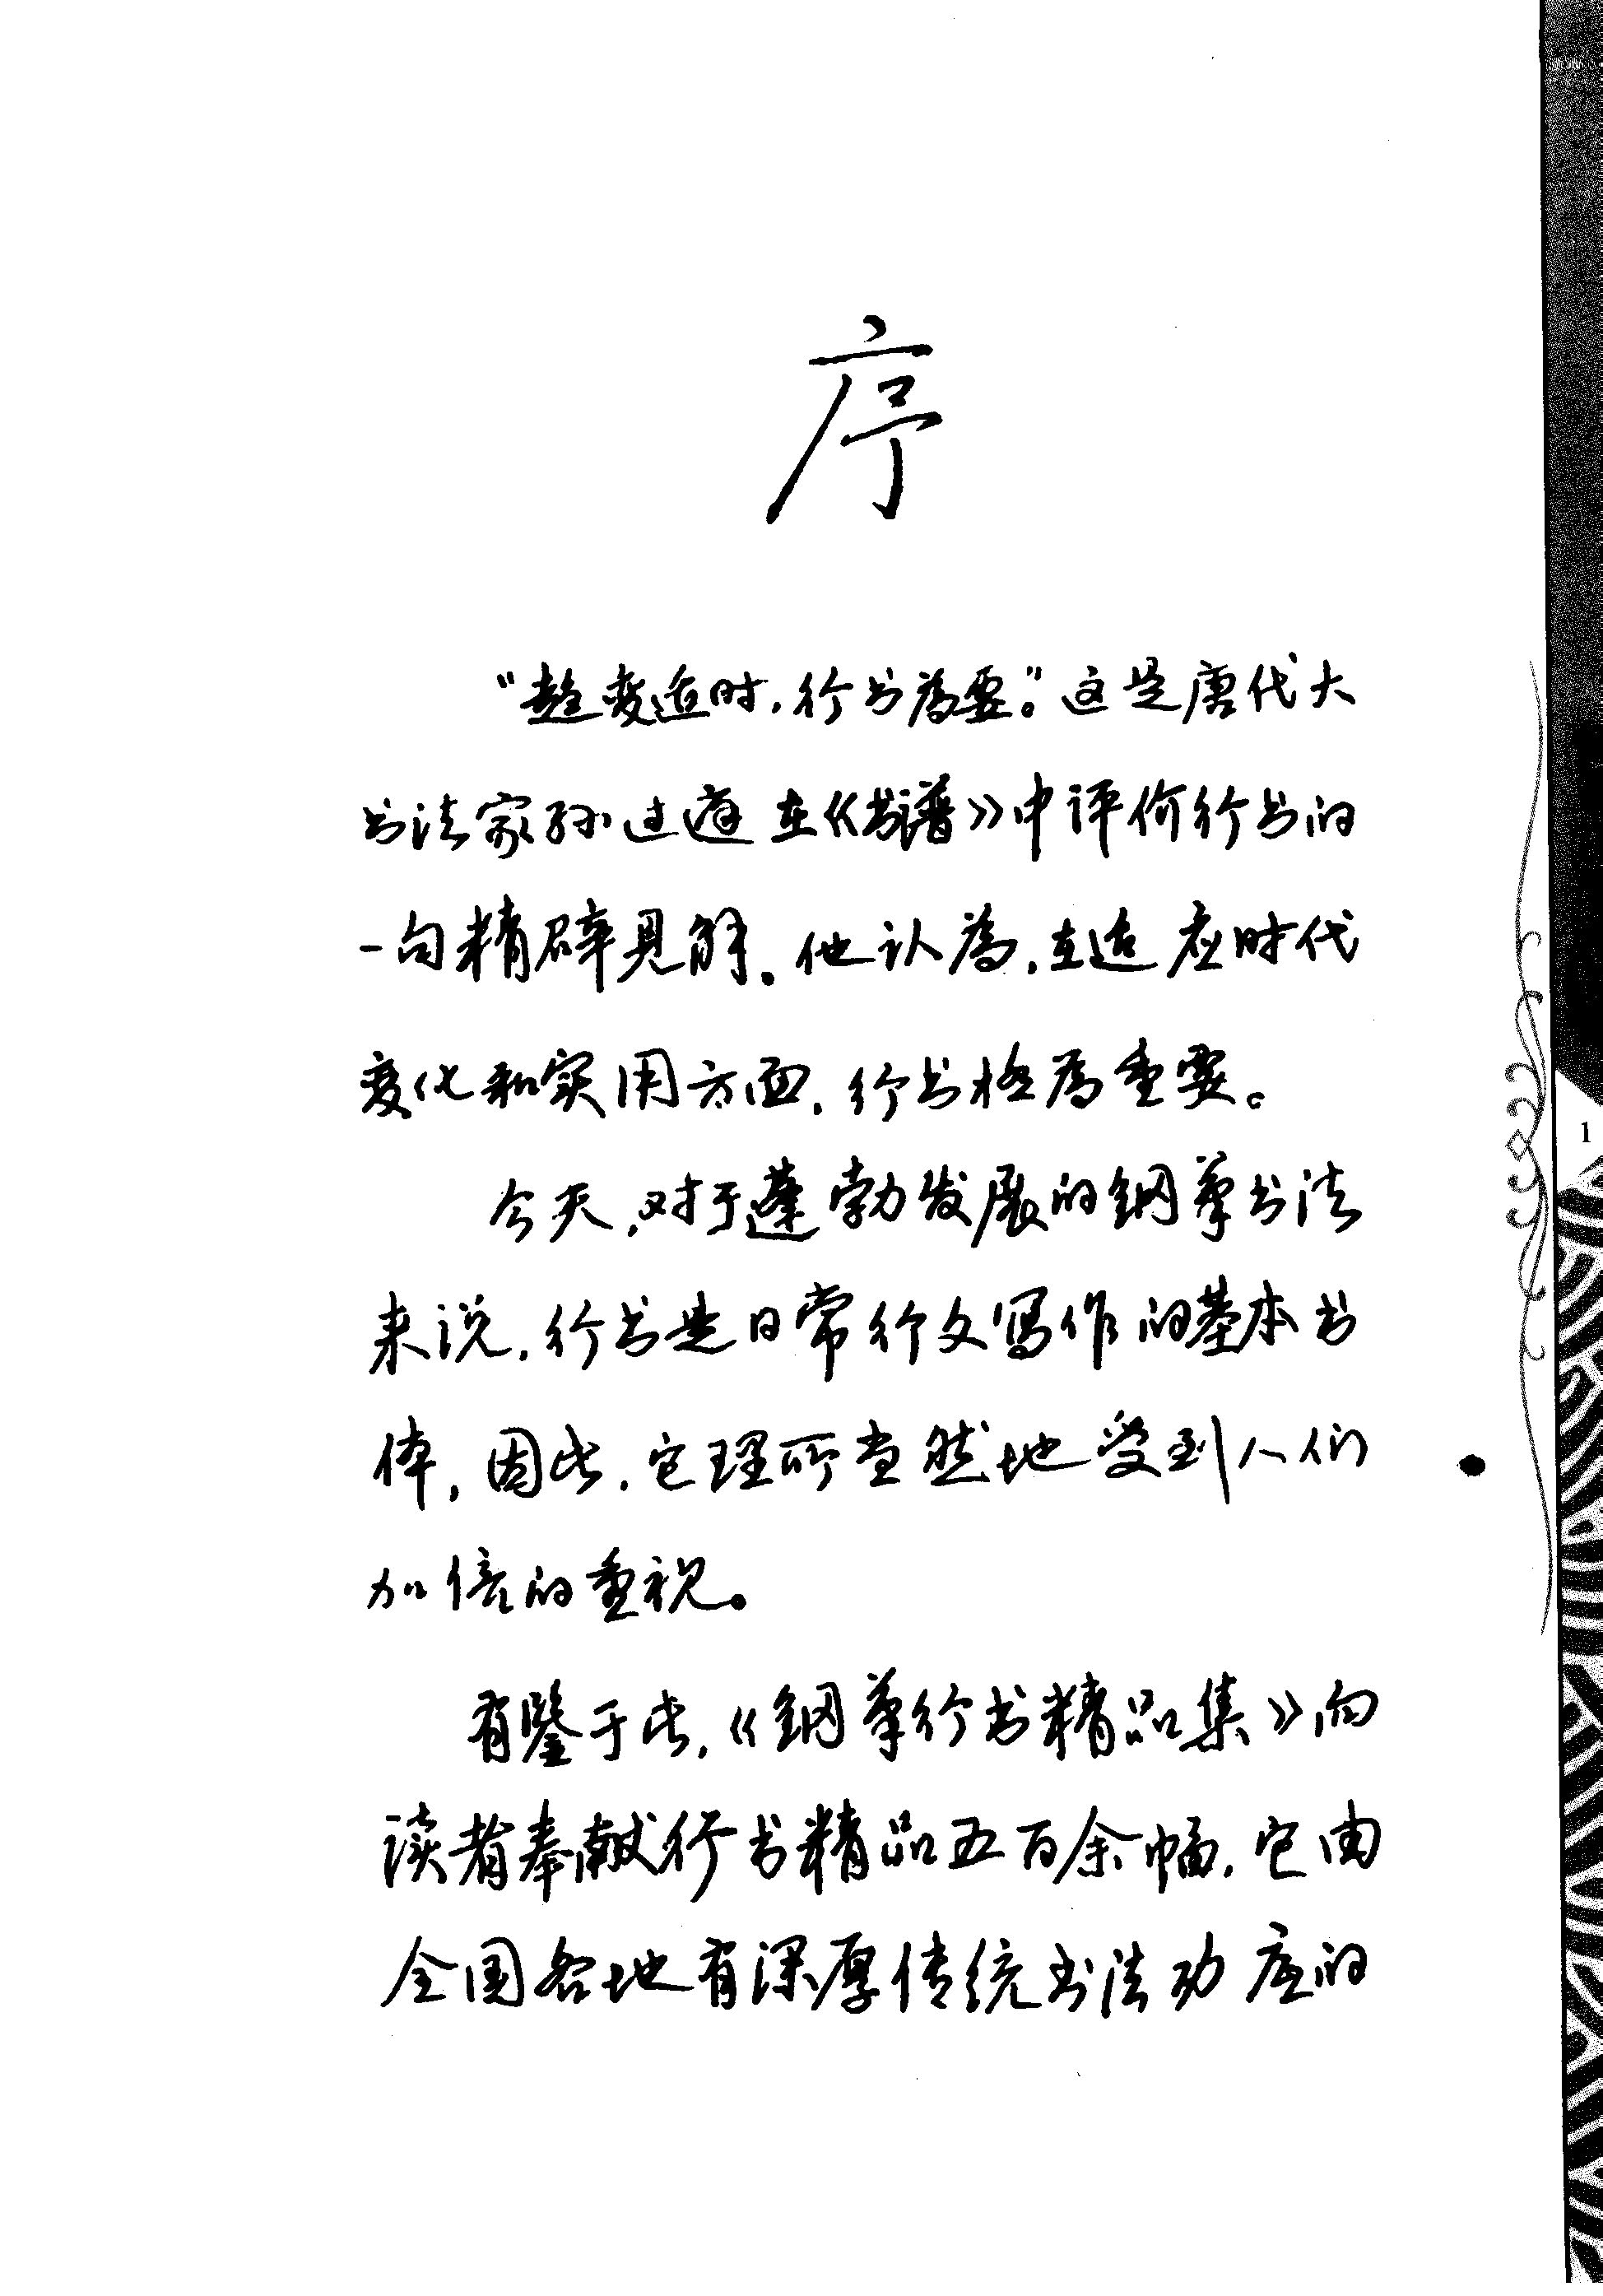 序
“趋变适时，行书为要。”这是唐代大
书法家孙过庭在《书谱》中评价行书的
一句精辟见解。他认为，在适应时代
变化和实用方面，行书格为重要。
今天，对于蓬勃发展的钢笔书法
来说，行书是日常行文写作的基本书
体，因此，它理所当然地受到人们
加倍的重视。
有鉴于此，《钢笔行书精品集》向
读者奉献行书精品五百余幅，它由
全国各地有深厚传统书法功底的
1